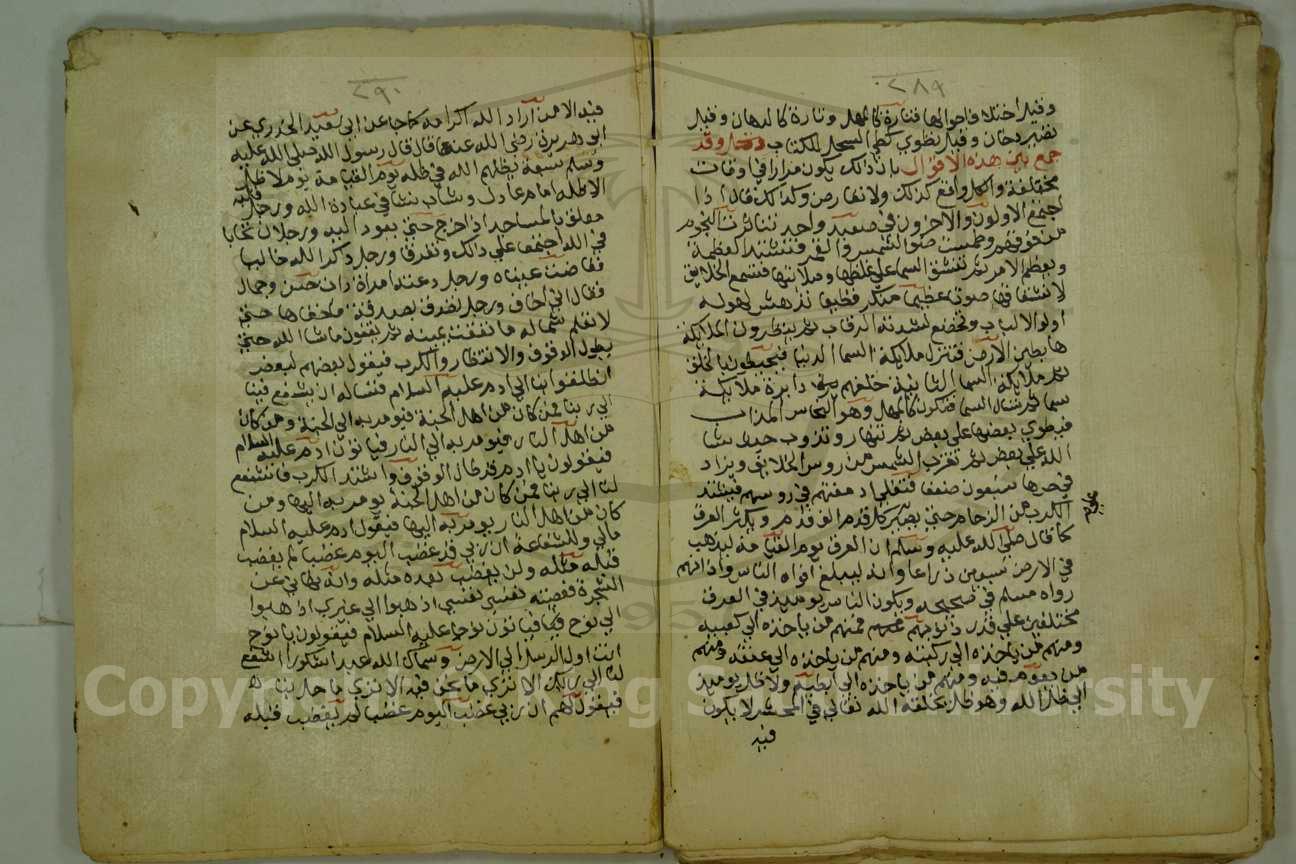 ٢٨٩
وقيل اختلاف احوالها فتارة كالمهل وتارة كالدهان وقيل
تصير دخان وقيل تطوي كطي السجل للكتاب وقد
جمع بين هذه الاقوال بان ذلك يكون مرارا في اوقات
مختلفة والكل واقع كذلك ولا تعارض وكذلك قال اذا
اجتمع الاولون والاخرون في صعيد واحد تناثرت النجوم
من فوقهم وطمست ضوا الشمس والقمر فتشتد الظلمة
ويعظم الامر ثم تنشق السما علي غلظها وصلابتها فتسمع الخلايق
لانشقاقها صوتا عظيما منكر فظيعا تذهش لهوله
اولوا الالباب وتخضع لشدته الرقاب ثم ينظرون الملايكة
هابطين الارض فتنزل ملايكة السما الدنيا فيحيطون بالخلق
ثم ملايكة السما الثانية خلفهم دايرة ملايكة
سما ثم تسال السما فتكون كالمهل وهو النحاس المذاب
فيطوي بعضها علي بعض ثم تنهار وتذوب حيث شا
الله علي بعض ثم تقرب الشمس من روس الخلايق ويزاد
في حرها سبعون ضعفا فتغلي ادمغتهم في روسهم فيشتد
الكرب من الزحام حتي يصير كل قدم الف قدم ويكثر العرق
كما قال صلي الله عليه وسلم ان العرق يوم القيامة ليذهب
في الارض سبعين ذراعا وانه ليبلغ افواه الناس واذانهم
رواه مسلم في صحيحه ويكون الناس يوميذ في العرق
مختلفين علي قدر ذنوبهم فمنهم من ياخذه الي كعبيه
ومنهم من ياخذه الي ركبتيه ومنهم من ياخذه الي عنقه ومنهم
من يعوم فيه ومنهم من ياخذه الي ابطيه ولا ظل يوميذ
الي ظل الله وهو ظل يخلقه الله تعالي في المحشر لا يكون
فيه
٢٩٠
فيه الا من اراد الله اكرامه كما جا عن ابي سعيد الخدري عن
ابو هريرة رضي الله عنهما قال قال رسول الله صلي الله عليه
وسلم سبعة يظلهم الله في ظله يوم القيامة يوم لا ظل
الا ظله امام عادل وشاب نشا في عبادة الله ورجل قلبه
معلق بالمساجد اذا خرج حتي يعود اليه ورجلان تحابا
في الله اجتمعا علي ذلك وتفرقا ورجل ذكر الله خاليا
ففاضت عيناه ورجل دعته امراة ذات حسن وجمال
فقال اني اخاف ورجل تصدق بصدقة فاخفاها حتي
لا تعلم شماله ما تنفقت يمينه ثم يقفون ماشا الله حتي
يطول الوقوف والانتظار والكرب فيقول بعضهم لبعض
انطلقوا بنا الي ادم عليه السلام فنساله ان يشفع فينا
الي ربنا فمن كان من اهل الجنة فيومر به الي الجنة ومن كان
من اهل النار فيومر به الي النار فياتون ادم عليه السلام
فيقولون يا ادم قد طال الوقوف واشتد الكرب فاشفع
لنا الي ربنا فمن كان من اهل الجنة يومر به اليها ومن
كان من اهل النار يومر به اليها فيقول ادم عليه السلام
مالي وللشفاعة ان ربي قد غضب اليوم غضبا لم يغضب
قبله مثله ولن يغضب بعده مثله وانه نهاني عن
الشجرة فعصيته نفسي نفسي اذهبوا الي غيري اذهبوا
الي نوح فياتون نوحا عليه السلام فيقولون يا نوح
انت اول الرسل الي الارض وسماك الله عبدا شكورا اشفع
لنا الي ربك الا تري ما نحن فيه الا تري ما حل بنا
فيقول لهم ان ربي غضب اليوم غضبا لم يغضب قبله
Copyright © King Saud University
1957